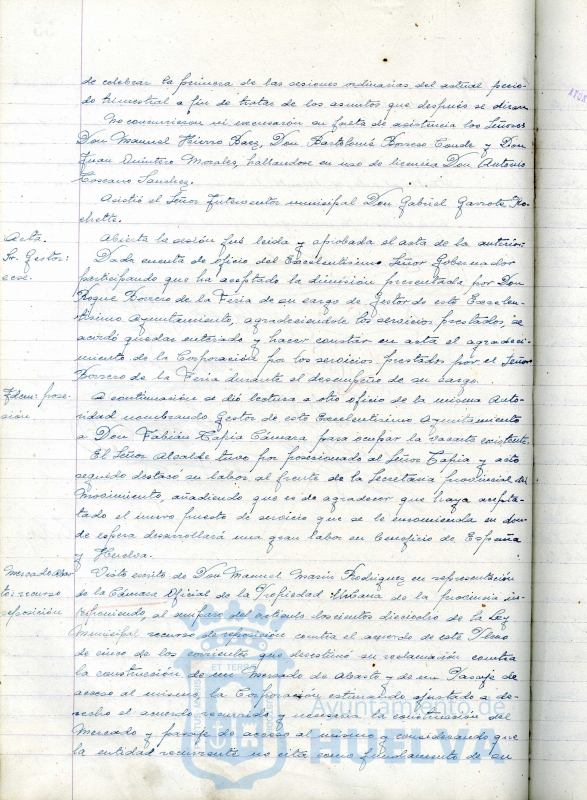 de celebrar la primera de las sesiones ordinarias del actual perio-
do trimestral a fin de tratar de los asuntos que después se diran
No concurrieron ni excusaron su falta de asistencia los Señores
Don Manuel Hierro Baez, Don Bartolomé Borrero Conde y Don
Juan Quintero Morales, hallandose en uso de licencia Don Antonio
Toscano Sanchez.
Asistió el Señor Interventor municipal Don Gabriel Garrote Ro-
chette.
Acta.
Abierta la sesión fué leida y aprobada el acta de la anterior.
Sr. Gestor:
cese.
Dada cuenta de oficio del Excelentísimo Señor Gobernador
participando que ha aceptado la dimisión presentada por Don
Roque Borrero de la Feria de su cargo de Gestor de este Excelen-
tísimo Ayuntamiento, agradeciendole los servicios prestados, se
acordó quedar enterado y hacer constar en acta el agradeci-
miento de la Corporación por los servicios prestados por el Señor
Borrero de la Feria durante el desempeño de su cargo.
Idem: pose-
sión
A continuación se dió lectura a otro oficio de la misma Auto-
ridad nombrando Gestor de este Excelentísimo Ayuntamiento
a Don Fabián Tapia Cámara para ocupar la vacante existente.
El Señor Alcalde tuvo por posesionado al Señor Tapia y acto
seguido destacó su labor al frente de la Secretaria provincial del
Movimiento, añadiendo que es de agradecer que haya acep-
tado el nuevo puesto de servicio que se le encomienda en don-
de espera desarrollará una gran labor en beneficio de España
y Huelva.
Mercado Abas-
tos: recurso
reposición
Visto escrito de Don Manuel Marin Rodriguez en representación
de la Cámara Oficial de la Propiedad Urbana de la provincia in-
terponiendo, al amparo del artículo doscientos dieciocho de la Ley
Municipal recurso de reposición contra el acuerdo de este Pleno
de cinco de los corrientes que desestimó su reclamación contra
la construcción de un Mercado de Abasto y de un Pasaje de
acceso al mismo, la Corporación estimando ajustado a de-
recho el acuerdo recurrido y necesaria la construcción del
Mercado y pasaje de acceso al mismo y considerando que
la entidad recurrente no cita como fundamento de su
ET TERRA
Ayuntamiento de
HUELVA